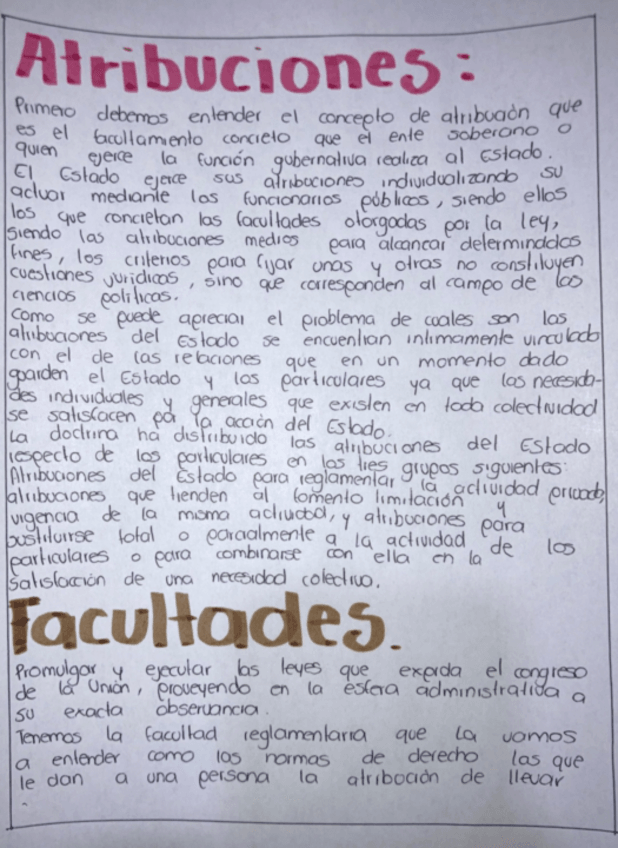 Atribuciones:
Primero debemos entender el concepto de atribución que
es el facultamiento concreto que el ente soberano o
quien ejerce la función gubernativa realiza al Estado.
El Estado ejerce sus atribuciones individualizando su
actuar mediante los funcionarios públicos, siendo ellos
los que concretan las facultades otorgadas por la ley,
siendo las atribuciones medios para alcanzar determinados
fines, los criterios para fijar unas y otras no constituyen
cuestiones jurídicas, sino que corresponden al campo de las
ciencias políticas.
Como se puede apreciar el problema de cuales son las
atribuciones del Estado se encuentran intimamente vinculado
con el de las relaciones que en un momento dado
guarden el Estado y los particulares ya que las necesida-
des individuales y generales que existen en toda colectividad
se satisfacen por la acción del Estado.
La doctrina ha distribuido las atribuciones del Estado
respecto de los particulares en los tres grupos siguientes:
Atribuciones del Estado para reglamentar la actividad privada,
atribuciones que tienden al fomento limitación y
vigencia de la misma actividad, y atribuciones para
sustituirse total o parcialmente a la actividad de los
particulares o para combinarse con ella en la
satisfacción de una necesidad colectiva.
Facultades.
Promulgar y ejecutar las leyes que expida el congreso
de la Unión, proveyendo en la esfera administrativa a
su exacta observancia.
Tenemos la facultad reglamentaria que la vamos
a entender como las normas de derecho las que
le dan a una persona la atribución de llevar